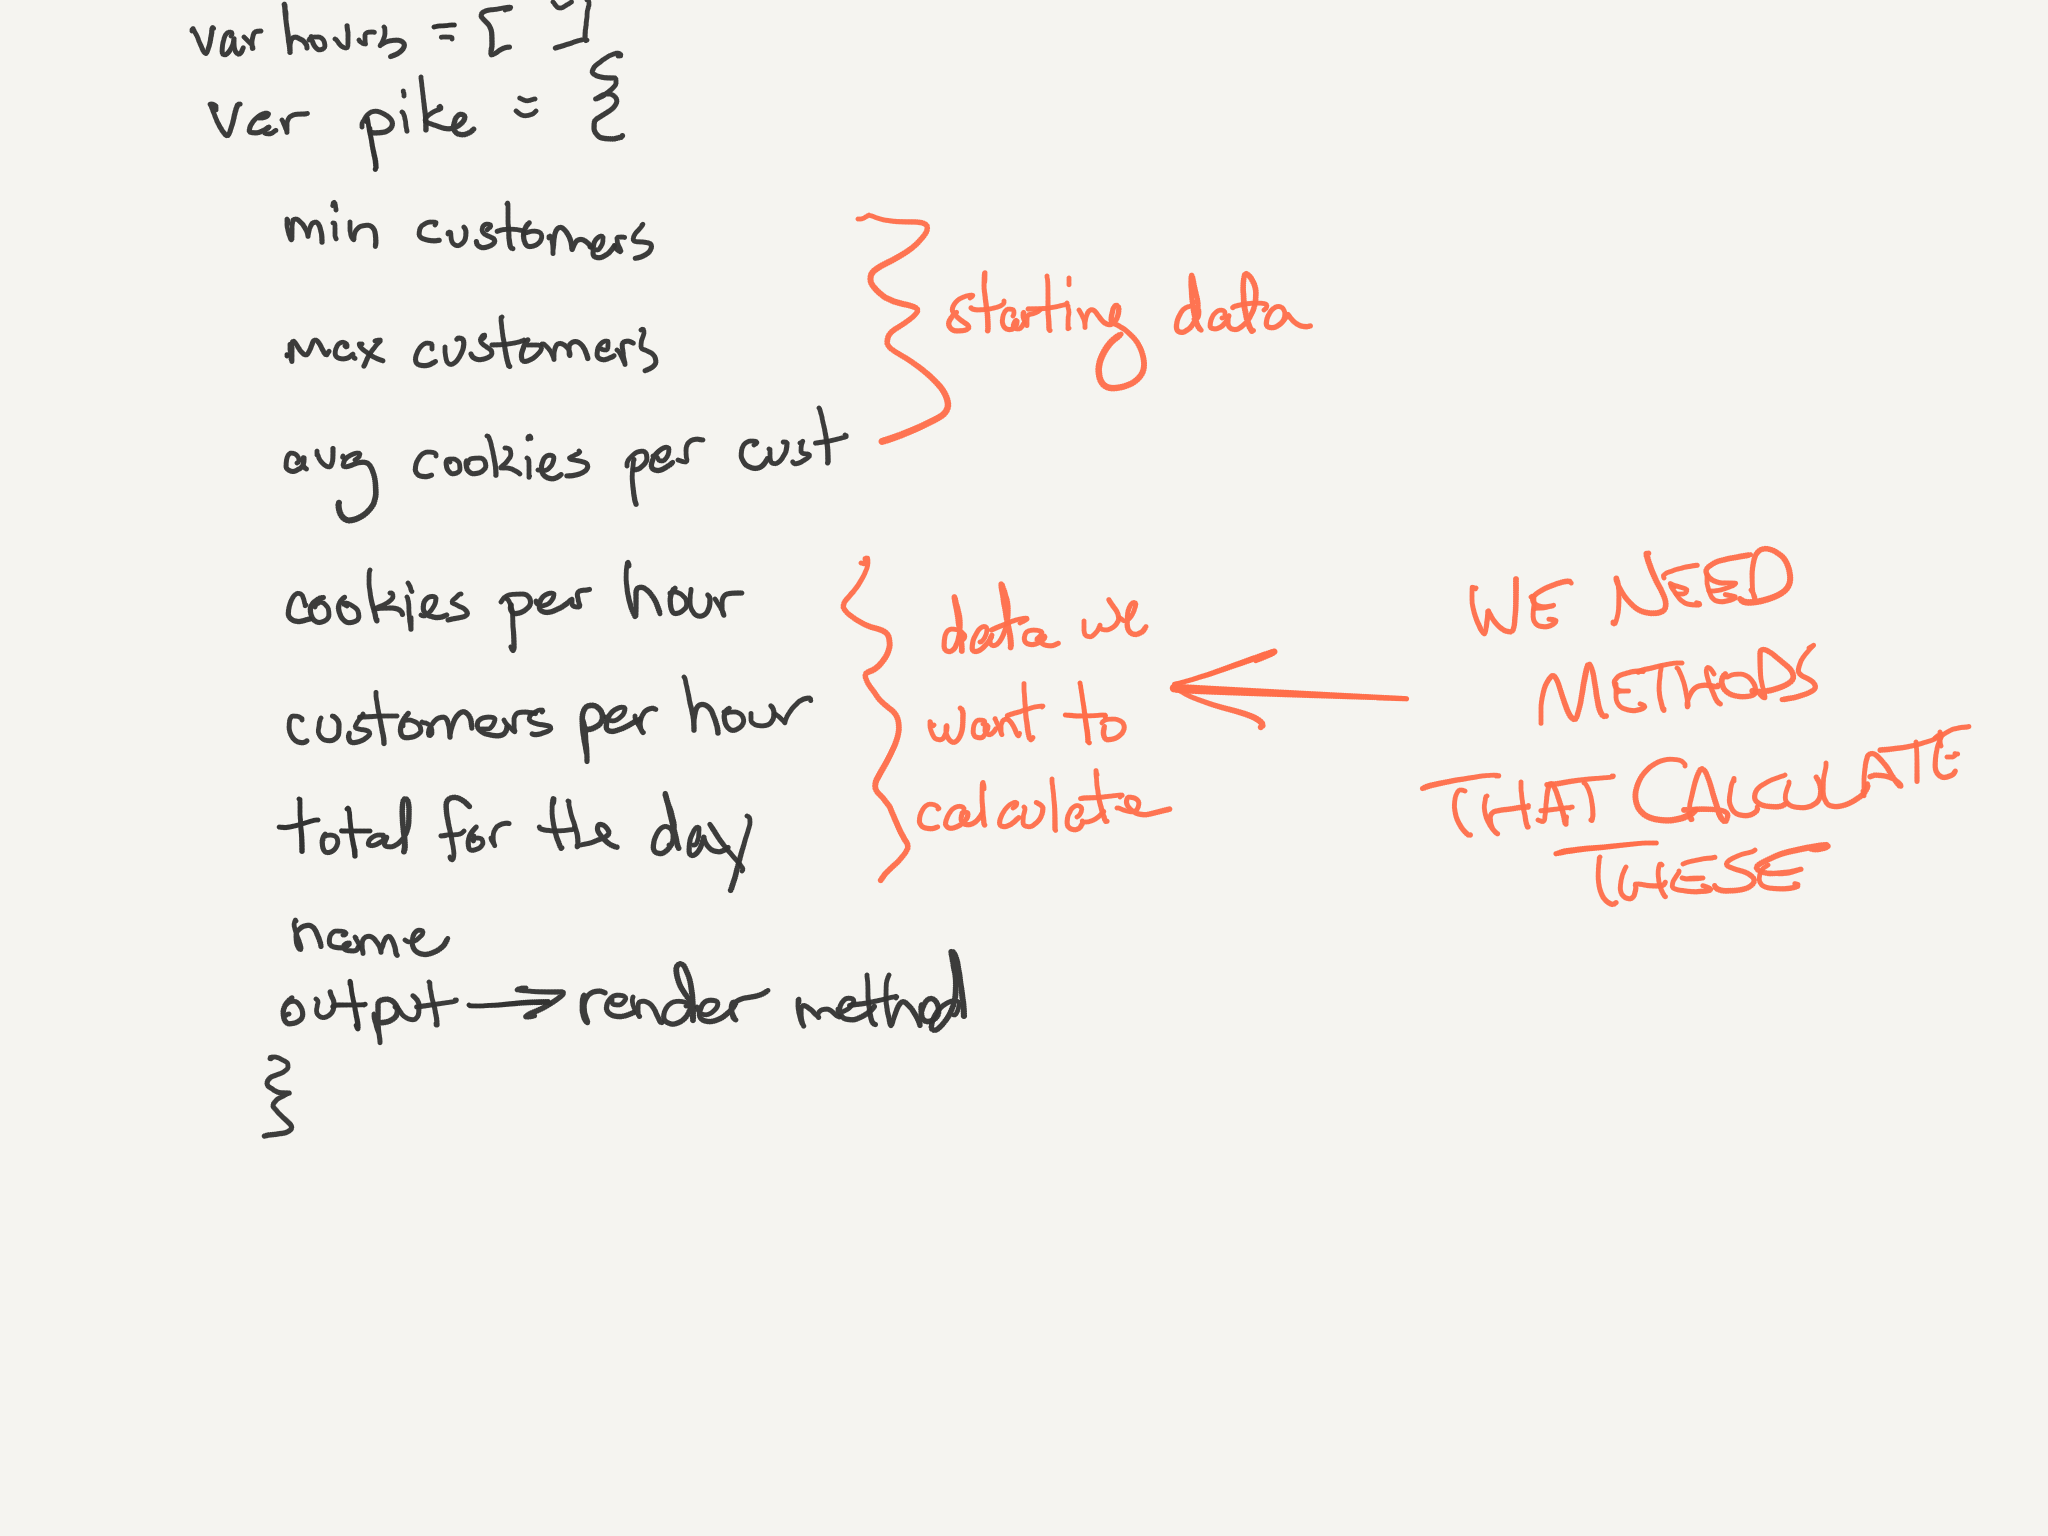 var hours = [ ]
var pike = {
min customers
max customers
avg cookies per cust
starting data
cookies per hour
customers per hour
total for the day
data we
want to
calculate
WE NEED
METHODS
THAT CALCULATE
THESE
name
output → render method
}